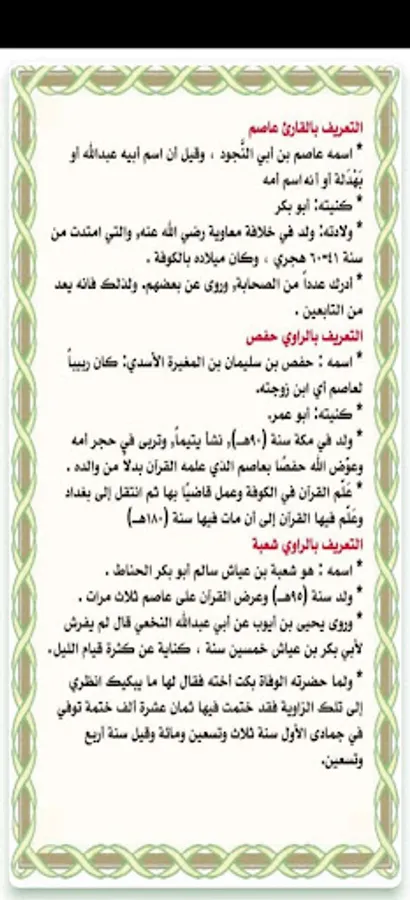 التعريف بالقارئ عاصم
* اسمه عاصم بن أبي النَّجود ، وقيل أن اسم أبيه عبدالله أو
بَهْدَلة أو أنه اسم أمه
* كنيته: أبو بكر
* ولادته: ولد في خلافة معاوية رضي الله عنه, والتي امتدت من
سنة ٤١-٦٠ هجري ، وكان ميلاده بالكوفة .
* أدرك عدداً من الصحابة, وروى عن بعضهم. ولذلك فانه يعد
من التابعين .
التعريف بالراوي حفص
* اسمه : حفص بن سليمان بن المغيرة الأسدي: كان ربيباً
لعاصم أي ابن زوجته.
* كنيته: أبو عمر.
* ولد في مكة سنة (٩٠هـ), نشأ يتيماً, وتربى في حجر أمه
وعوّض الله حفصًا بعاصم الذي علمه القرآن بدلاً من والده .
* علّم القرآن في الكوفة وعمل قاضيًا بها ثم انتقل إلى بغداد
وعَلّم فيها القرآن إلى أن مات فيها سنة (١٨٠هـ)
التعريف بالراوي شعبة
* اسمه : هو شعبة بن عياش سالم أبو بكر الحناط .
* ولد سنة (٩٥هـ) وعرض القرآن على عاصم ثلاث مرات .
* وروى يحيى بن أيوب عن أبي عبدالله النخعي قال لم يفرش
لأبي بكر بن عياش خمسين سنة ، كناية عن كثرة قيام الليل.
* ولما حضرته الوفاة بكت أخته فقال لها ما يبكيك انظري
إلى تلك الزاوية فقد ختمت فيها ثمان عشرة ألف ختمة توفي
في جمادى الأول سنة ثلاث وتسعين ومائة وقيل سنة أربع
وتسعين.